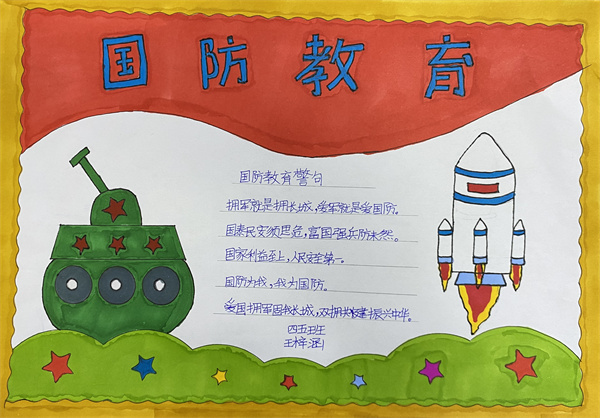 国防教育
国防教育警句
拥军就是拥长城,爱军就是爱国防。
国泰民安须思危,富国强兵防未然。
国家利益至上,人民安全第一。
国防为我,我为国防。
爱国拥军固我长城,双拥共建振兴中华。
四五班
王梓涵